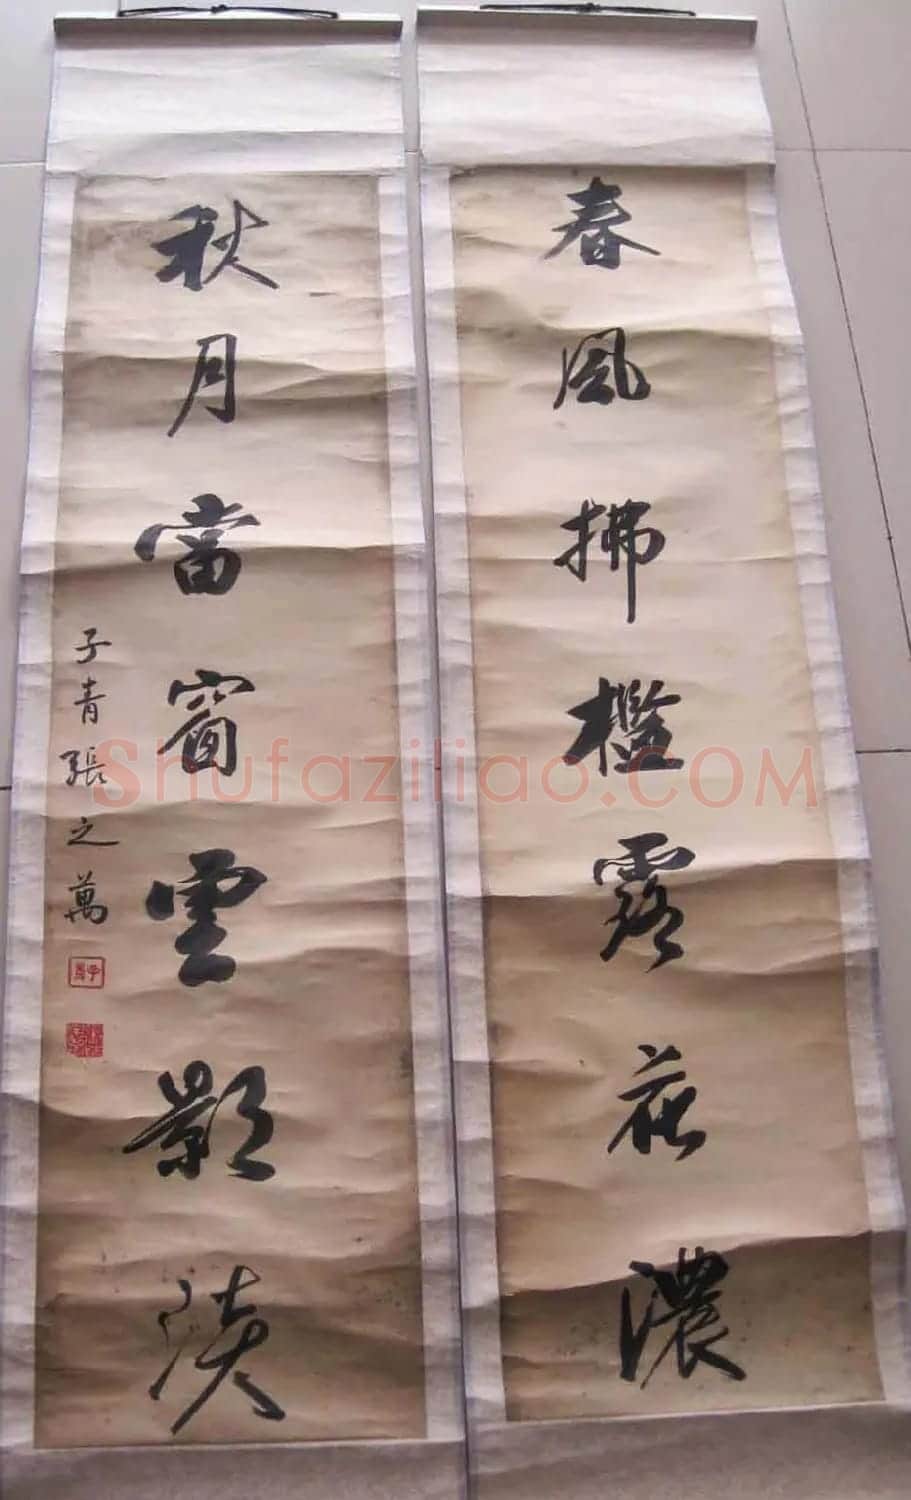 春風拂檻露花濃
秋月當窗雲影淡
子青張之萬
Shufaziliao.COM